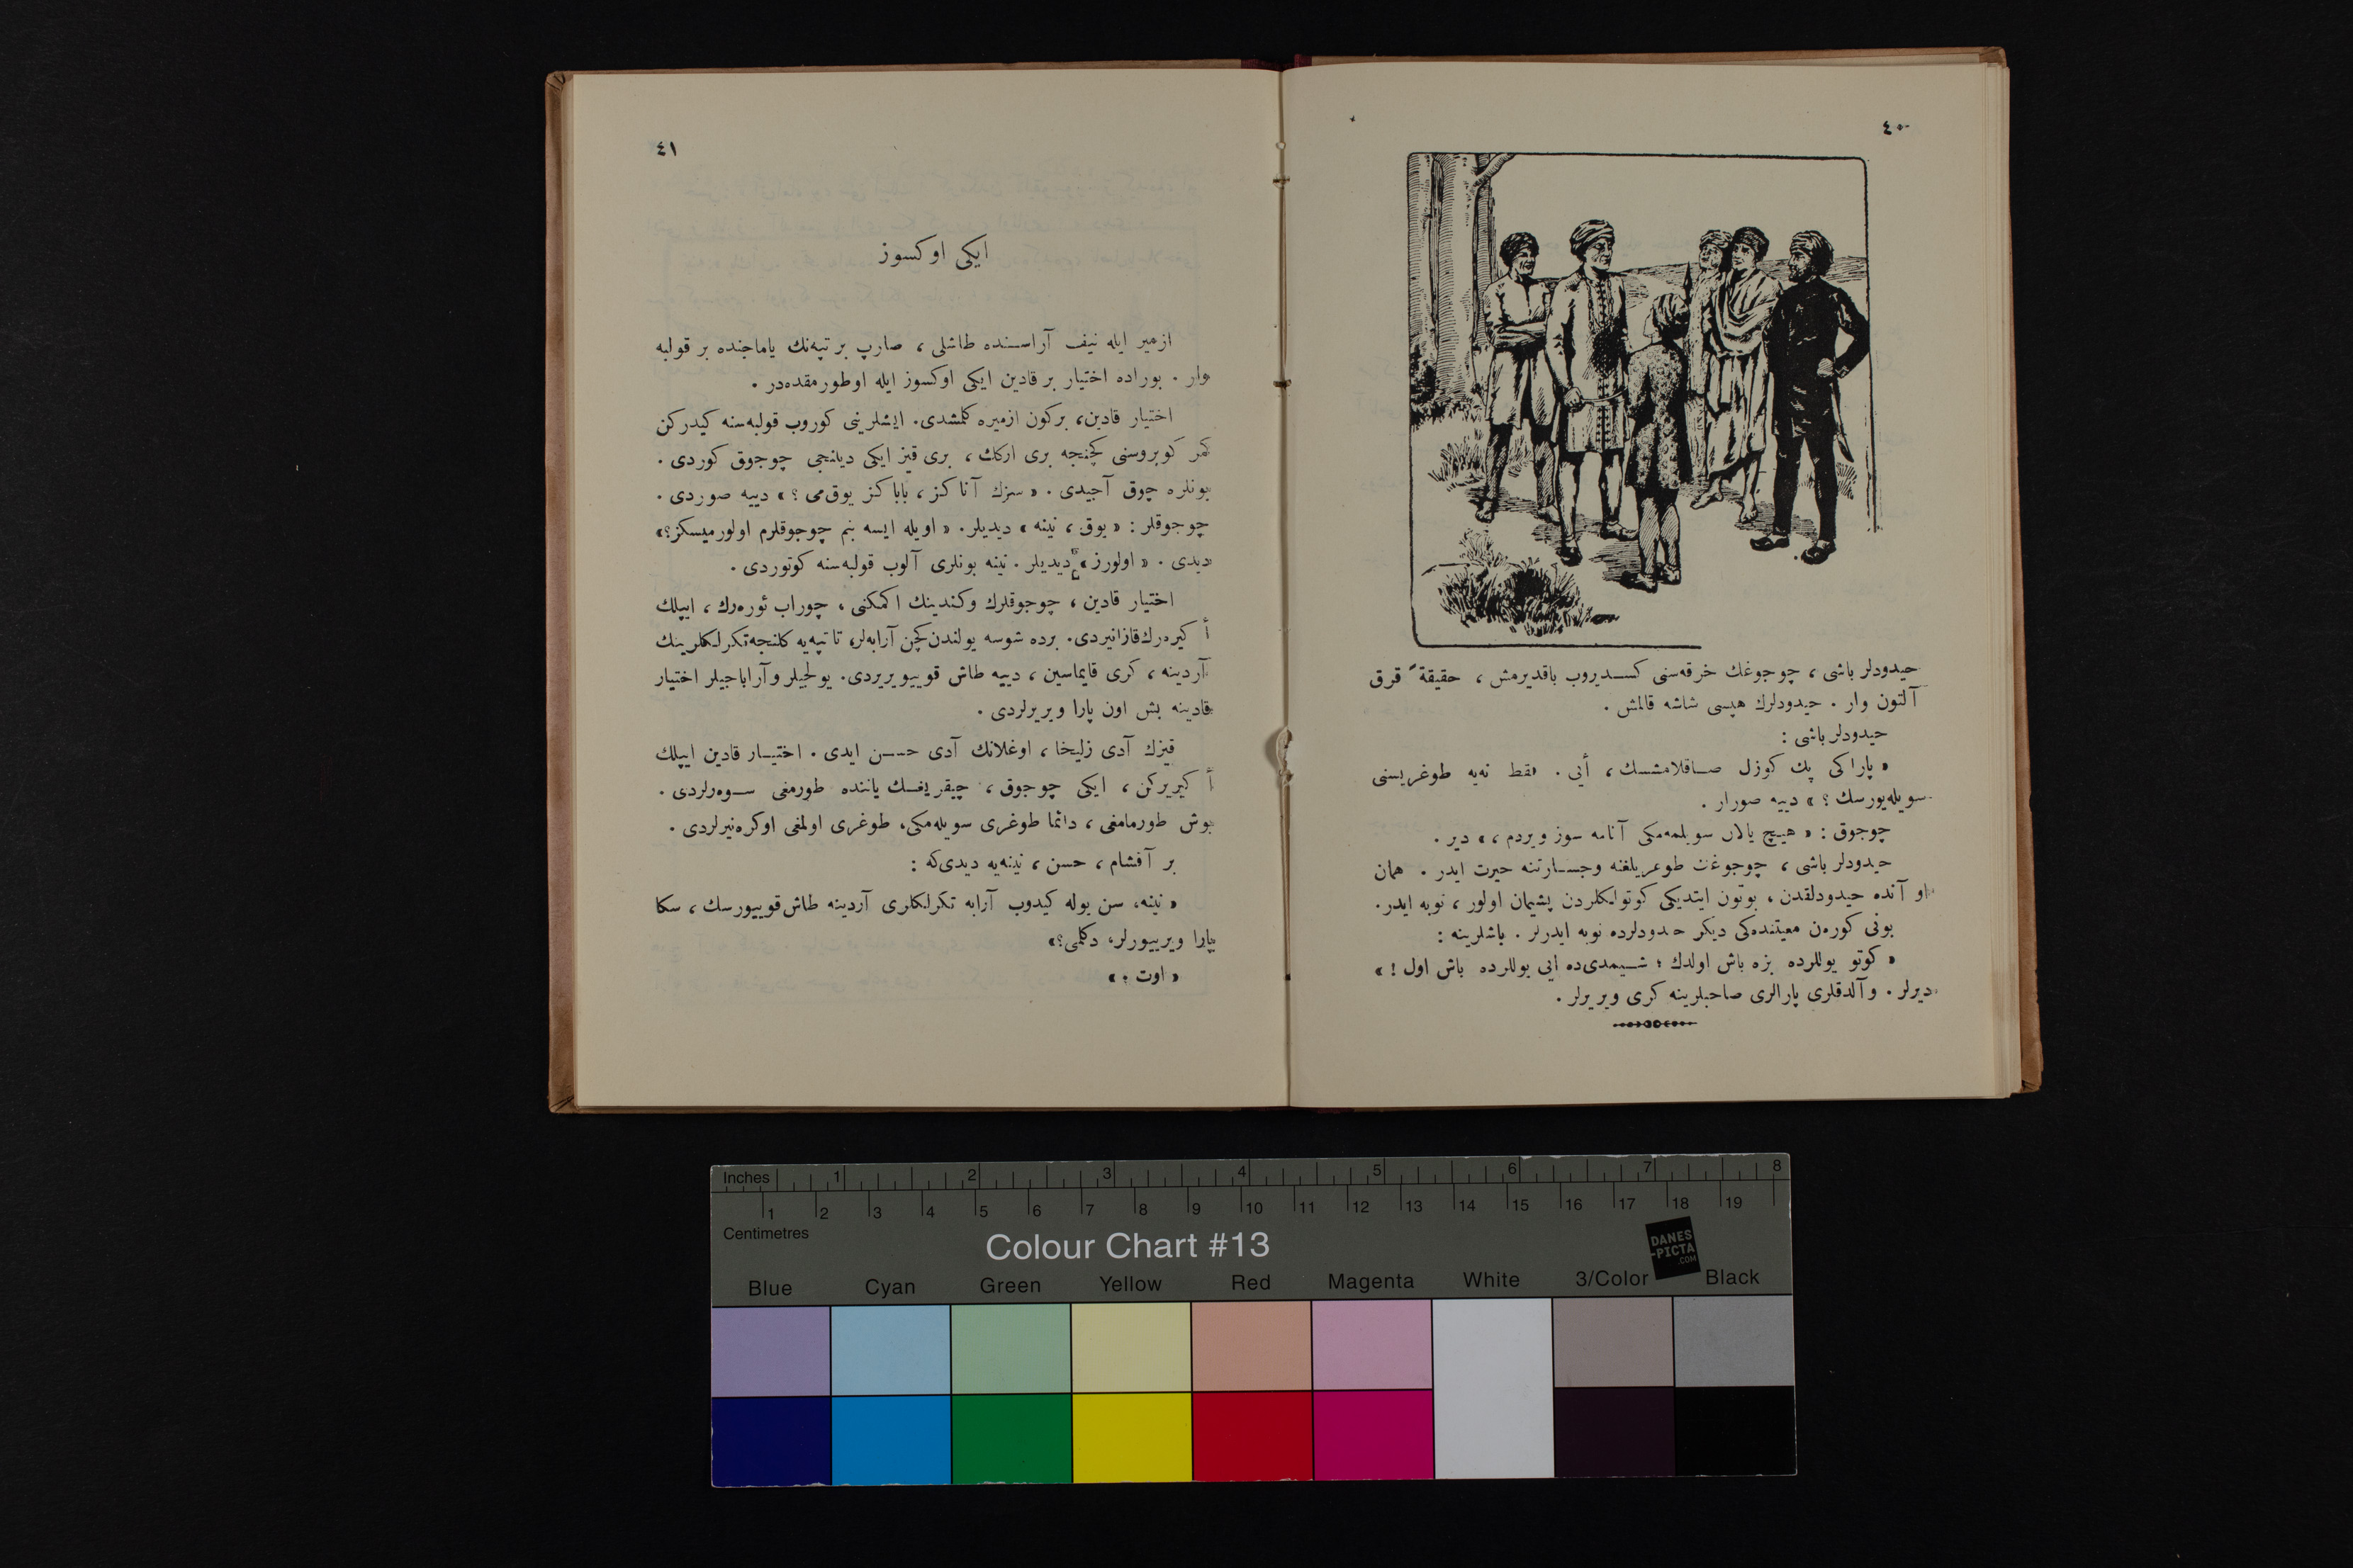 ٤٠
حیدودلر باشی ، چوجوغك خرقه‌سنی كسدیروب باقدیرمش ، حقیقةً قرق
آلتون وار . حیدودلرك هپسی شاشه قالمش .
حیدودلر باشی :
« پاراكی پك كوزل صاقلامشسك ، أیی . فقط نه‌یه طوغریسنی
سویله‌یورسك ؟ » دییه صورار .
چوجوق : « هیچ یالان سویلمه‌مكی آنامه سوز ویردم ، » دیر .
حیدودلر باشی ، چوجوغك طوغریلغنه وجسارتنه حیرت ایدر . همان
او آنده حیدودلقدن ، بوتون ایتدیكی كوتولكلردن پشیمان اولور ، توبه ایدر .
بونی كوره‌ن معیتنده‌كی دیكر حیدودلرده توبه ایدرلر . باشلرینه :
« كوتو یوللرده بزه باش اولدك ؛ شیمدی‌ده ایی یوللرده باش اول ! »
دیرلر . وآلدقلری پارالری صاحبلرینه كری ویریرلر .
٤١
ایكی اوكسوز
ازمیر ایله نیف آراسنده طاشلی ، صارپ بر تپه‌نك یاماجنده بر قولبه
وار . بوراده اختیار بر قادین ایكی اوكسوز ایله اوطورمقده‌در .
اختیار قادین، بركون ازمیره كلمشدی. ایشلرینی كوروب قولبه‌سنه كیدركن
كمر كوپروسنی كچنجه بری اركك ، بری قیز ایكی دیلنجی چوجوق كوردی .
بونلره چوق آجیدی . « سزك آناكز ، باباكز یوق‌می ؟ » دییه صوردی .
چوجوقلر : « یوق ، نینه » دیدیلر. « اویله ایسه بنم چوجوقلرم اولورمیسكز؟»
دیدی . « اولورز » دیدیلر . نینه بونلری آلوب قولبه‌سنه كوتوردی .
اختیار قادین ، چوجوقلرك وكندینك اكمكنی ، چوراب ئوره‌رك ، ایپلك
أكیره‌رك قازانیردی. برده شوسه یولندن كچن آرابه‌لر، تا تپه‌یه كلنجه تكرلكلرینك
آردینه ، كری قایماسین ، دییه طاش قوییویریردی. یولجیلر وآراباجیلر اختیار
قادینه بش اون پارا ویریرلردی .
قیزك آدی زلیخا ، اوغلانك آدی حسن ایدی . اختیار قادین ایپلك
أكیریركن ، ایكی چوجوق ، چیقریغك یاننده طورمغی سوه‌رلردی .
بوش طورمامغی ، دائما طوغری سویله‌مكی، طوغری اولمغی اوكره‌نیرلردی .
بر آقشام ، حسن ، نینه‌یه دیدی‌كه :
« نینه، سن یوله كیدوب آرابه تكرلكلری آردینه طاش قوییورسك ، سكا
پارا ویرییورلر، دكلمی؟»
« اوت . »
Inches 1 2 3 4 5 6 7 8
1 2 3 4 5 6 7 8 9 10 11 12 13 14 15 16 17 18 19
Centimetres
Colour Chart #13
DANES
-PICTA
.COM
Blue Cyan Green Yellow Red Magenta White 3/Color Black